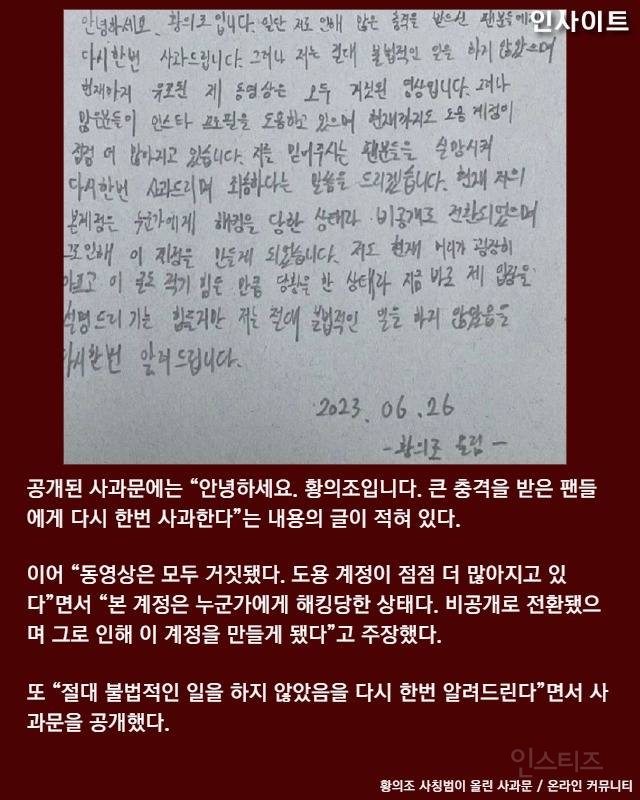 인사이트
안녕하세요. 황의조입니다. 일단 저로 인해 많은 충격을 받으신 팬분들에게
다시한번 사과드립니다. 그러나 저는 절대 불법적인 일을 하지 않았으며
현재까지 유포된 제 동영상은 모두 거짓된 영상입니다. 그러나
많은분들이 인스타 프로필을 도용하고 있으며 현재까지도 도용 계정이
점점 더 많아지고 있습니다. 저를 믿어주시는 팬분들을 실망시켜
다시한번 사과드리며 죄송하다는 말씀을 드리겠습니다. 현재 저의
본계정은 누군가에게 해킹을 당한 상태라 비공개로 전환되었으며
그로인해 이 계정을 만들게 되었습니다. 저도 현재 머리가 굉장히
아프고 이 글도 적기 힘들 만큼 당황을 한 상태라 지금 바로 제 입장을
설명드리기는 힘들지만 저는 절대 불법적인 일을 하지 않았음을
다시한번 알려드립니다.
2023. 06. 26
- 황의조 올림 -
공개된 사과문에는 “안녕하세요. 황의조입니다. 큰 충격을 받은 팬들
에게 다시 한번 사과한다”는 내용의 글이 적혀 있다.
이어 “동영상은 모두 거짓됐다. 도용 계정이 점점 더 많아지고 있
다”면서 “본 계정은 누군가에게 해킹당한 상태다. 비공개로 전환됐으
며 그로 인해 이 계정을 만들게 됐다”고 주장했다.
또 “절대 불법적인 일을 하지 않았음을 다시 한번 알려드린다”면서 사
과문을 공개했다.
인스티즈
황의조 사칭범이 올린 사과문 / 온라인 커뮤니티